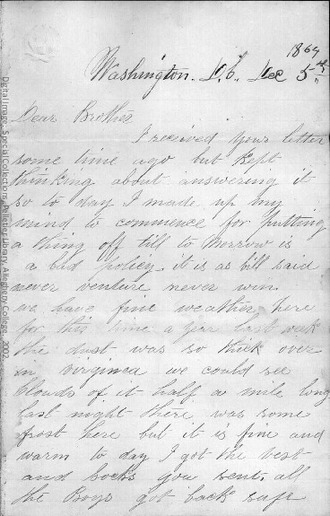 1864
Washington. D.C. Dec 5th
Dear Brother
I received your letter
some time ago but kept
thinking about answering it
so to day I made up my
mind to commence for putting
a thing off till to morrow is
a bad policy. it is as bill said
never venture never win
we have fine weather here
for this time a year last week
the dust was so thick over
in virginea we could see
clouds of it half a mile long
last night there was some
frost here but it is fine and
warm to day I got the vest
and socks you sent. all
the Boys got back safe
Detail Image, Special Collections, Pelletier Library, Allegheny College, 2002